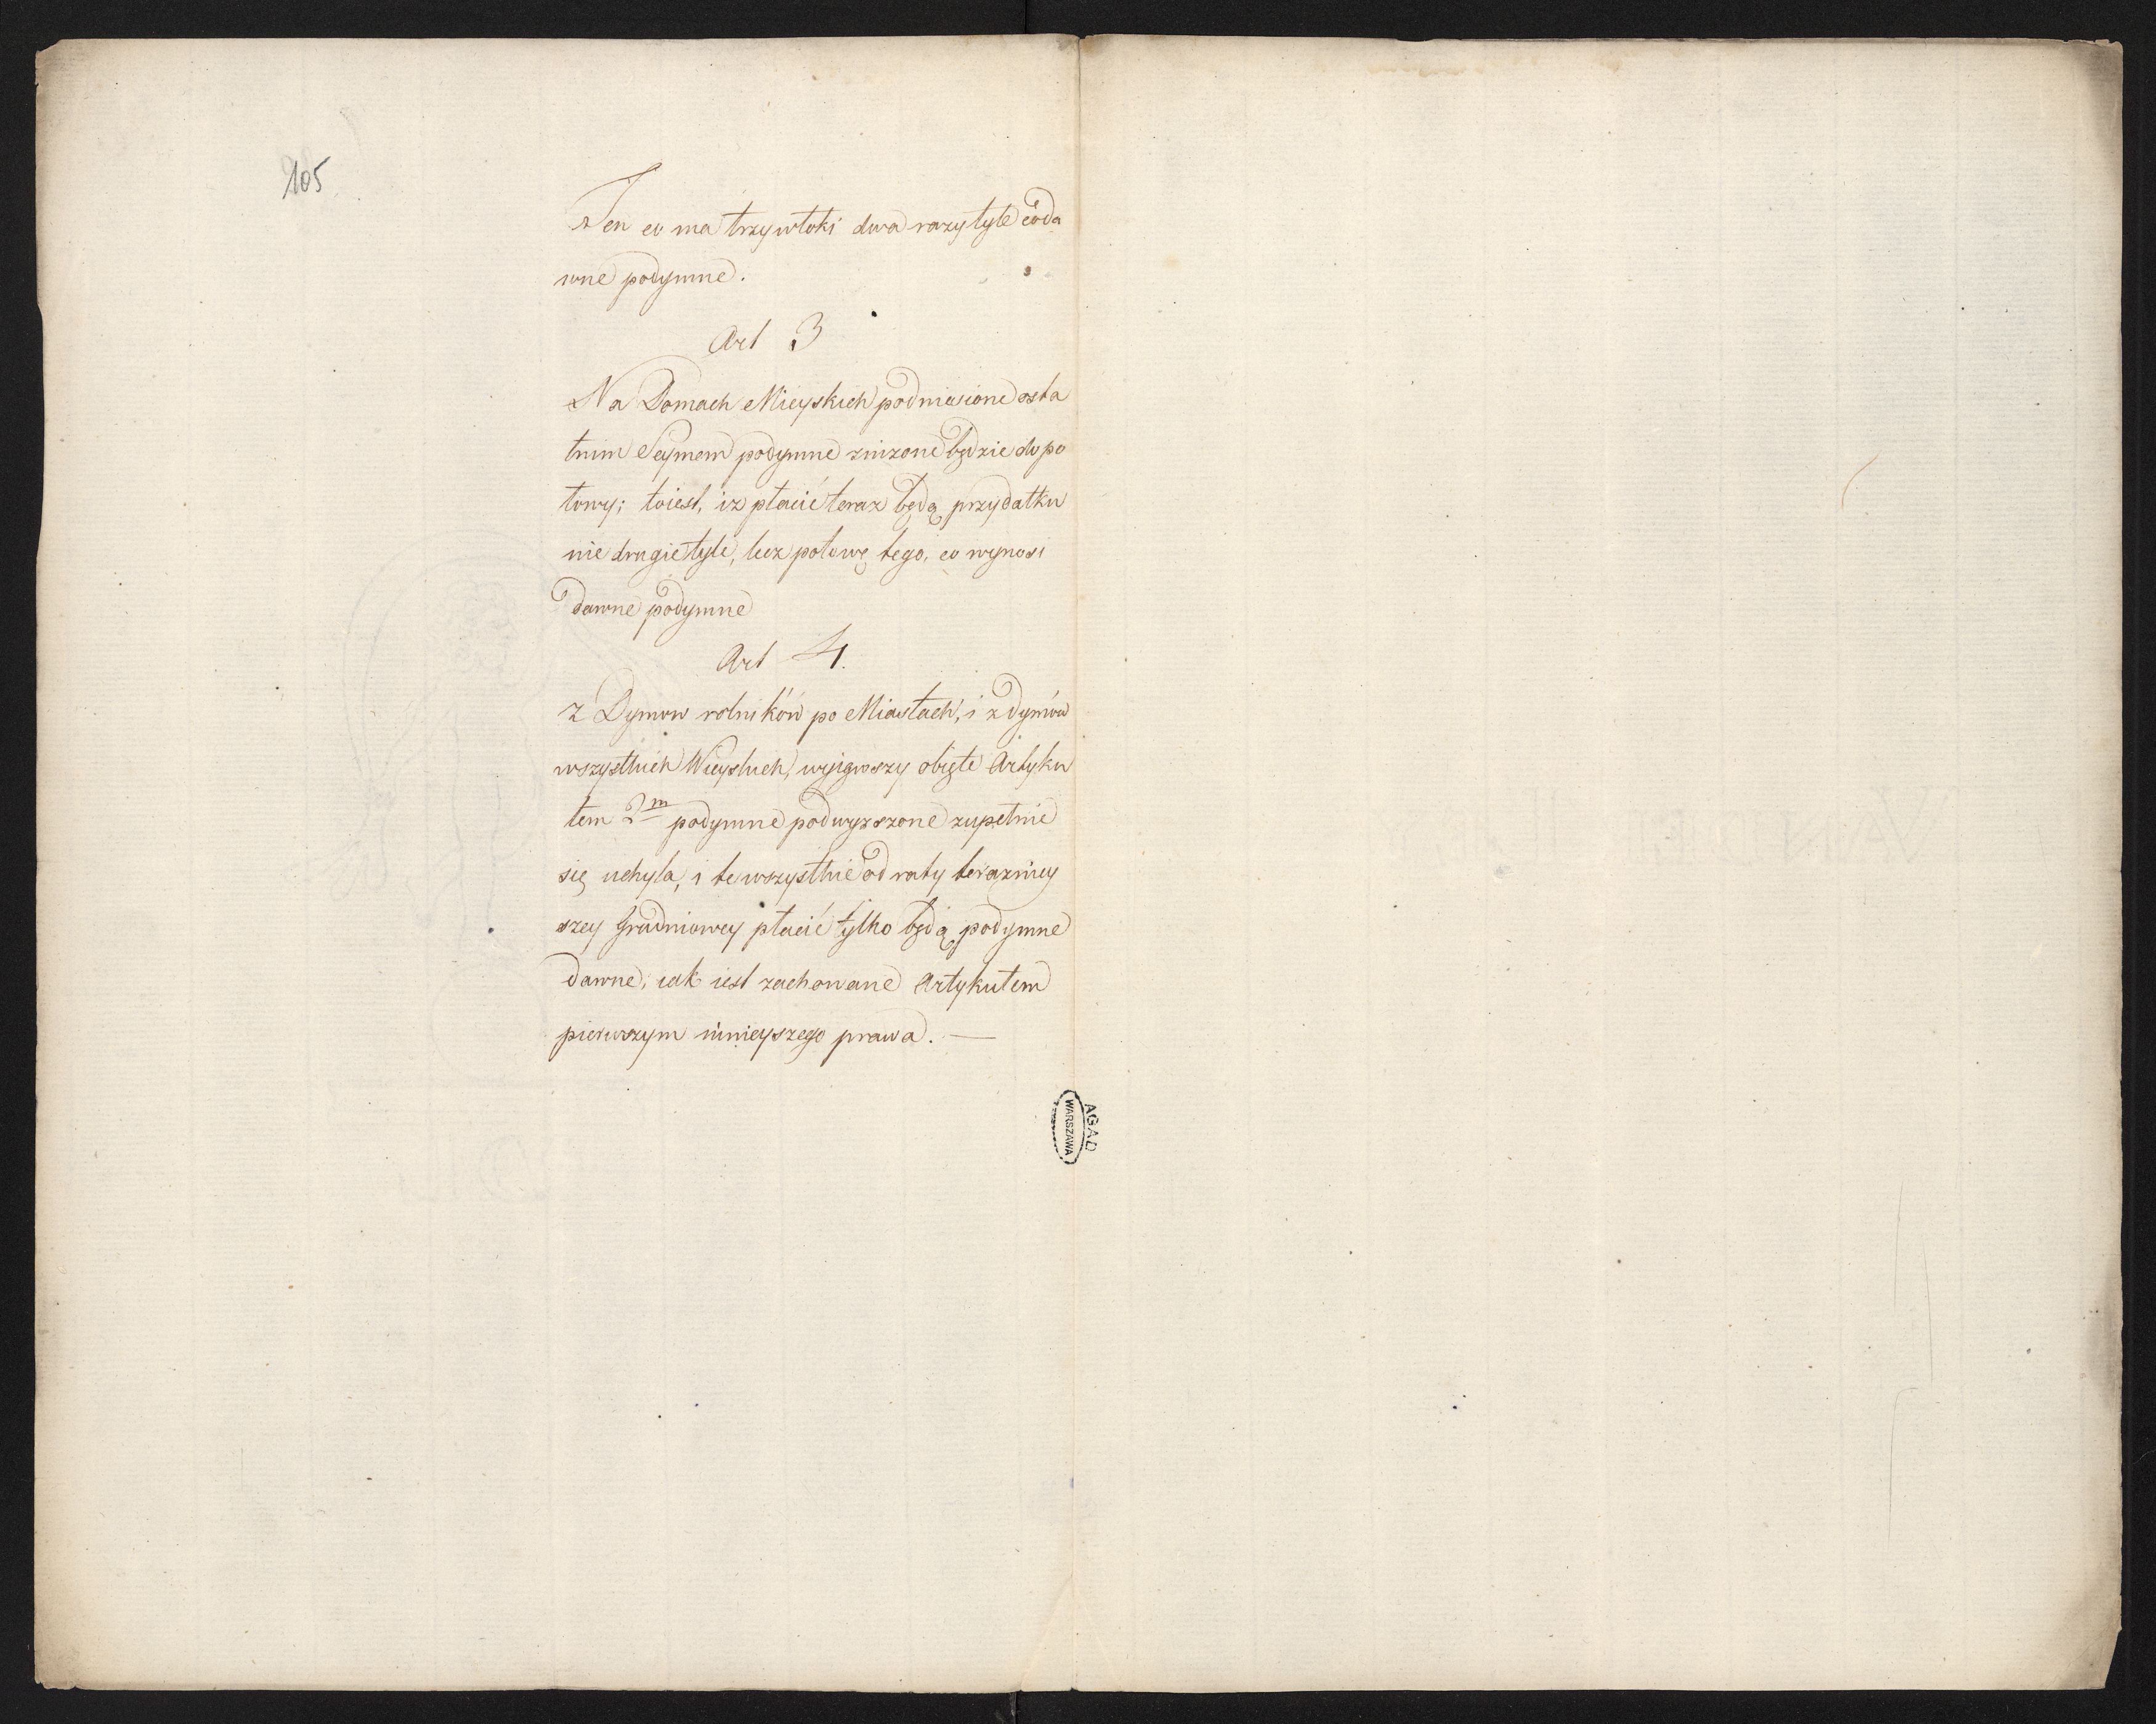 105
Ten co ma trzy włoki dwa razy tyle co da
wne podymne.
Art 3
Na Domach Mieyskich podniesione osta
tnim Seymem podymne zniżone będzie do po
łowy; to iest, iż płacić teraz będą przydatku
nie drugie tyle, lecz połowę tego, co wynosi
dawne podymne
Art 4.
z Dymow rolników po Miastach, i z dymów
wszystkich Wieyskich, wyiąwszy obięte Artyku
łem 2m podymne podwyższone zupełnie
się uchyla, i te wszystkie od raty teraźniey
szey Grudniowey płacić tylko będą podymne
dawne, iak iest zachowane Artykułem
pierwszym ninieyszego prawa. —
AGAD
WARSZAWA